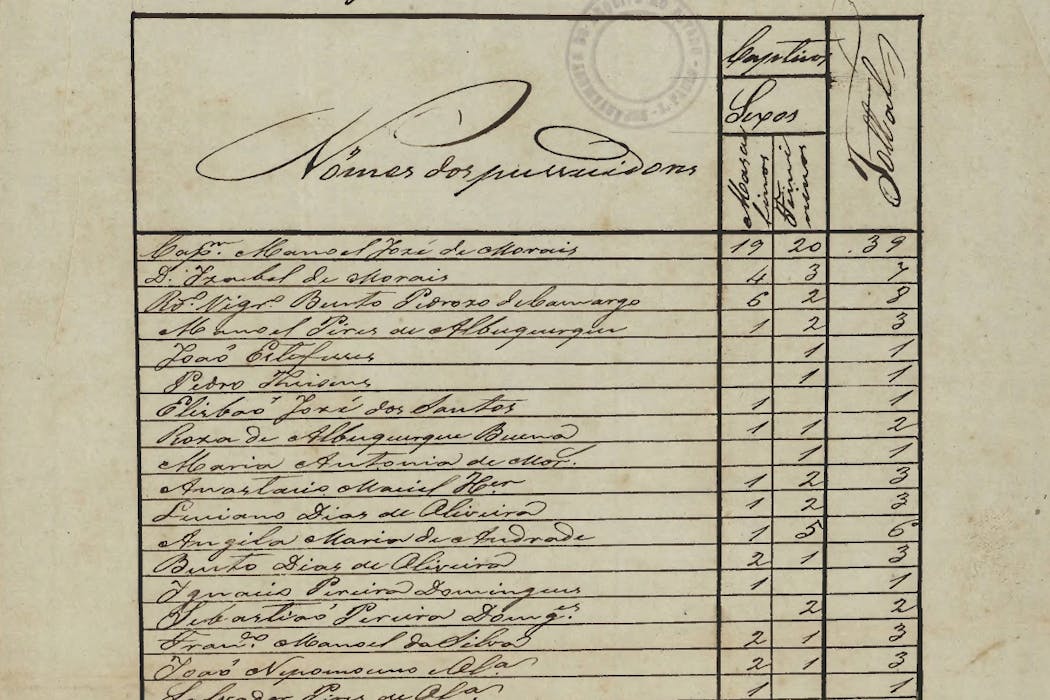 Captivos
Sexos
Total
Nomes dos possuidores
Masculinos
Femininos
Capm. Manoel José de Morais 19 20 39
D. Izabel de Morais 4 3 7
Rdo. Vigro. Bento Pedrozo de Camargo 6 2 8
Manoel Pires de Albuquerque 1 2 3
João 1 1
Pedro 1 1
Elisbão José dos Santos 1 1
Roza de Albuquerque Buena 1 1 2
Maria Antonia de Mor. 1 1
Anastacio Maciel 1 2 3
Luciano Dias de Oliveira 1 2 3
Angela Maria de Andrade 1 5 6
Bento Dias de Oliveira 2 1 3
Ignacio Pereira Domingues 1 1
Sebastião Pereira Domgs. 2 2
Franco. Manoel da Silva 2 1 3
João Nipomuceno 2 1 3
Salvador Pires de 1 1